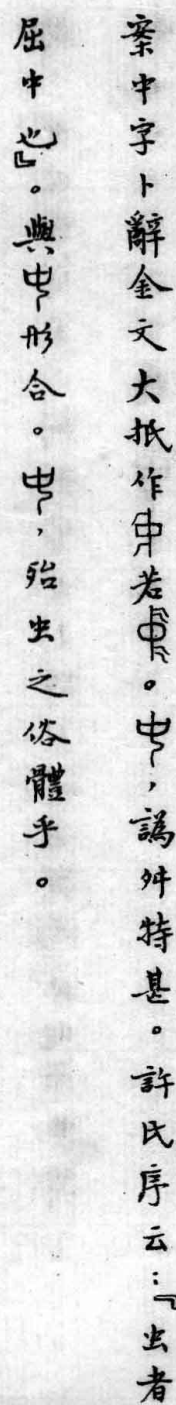 案中字卜辭金文大抵作若。,譌舛特甚。許氏序云:『虫者
屈中也』。與形合。,殆虫之俗體乎。